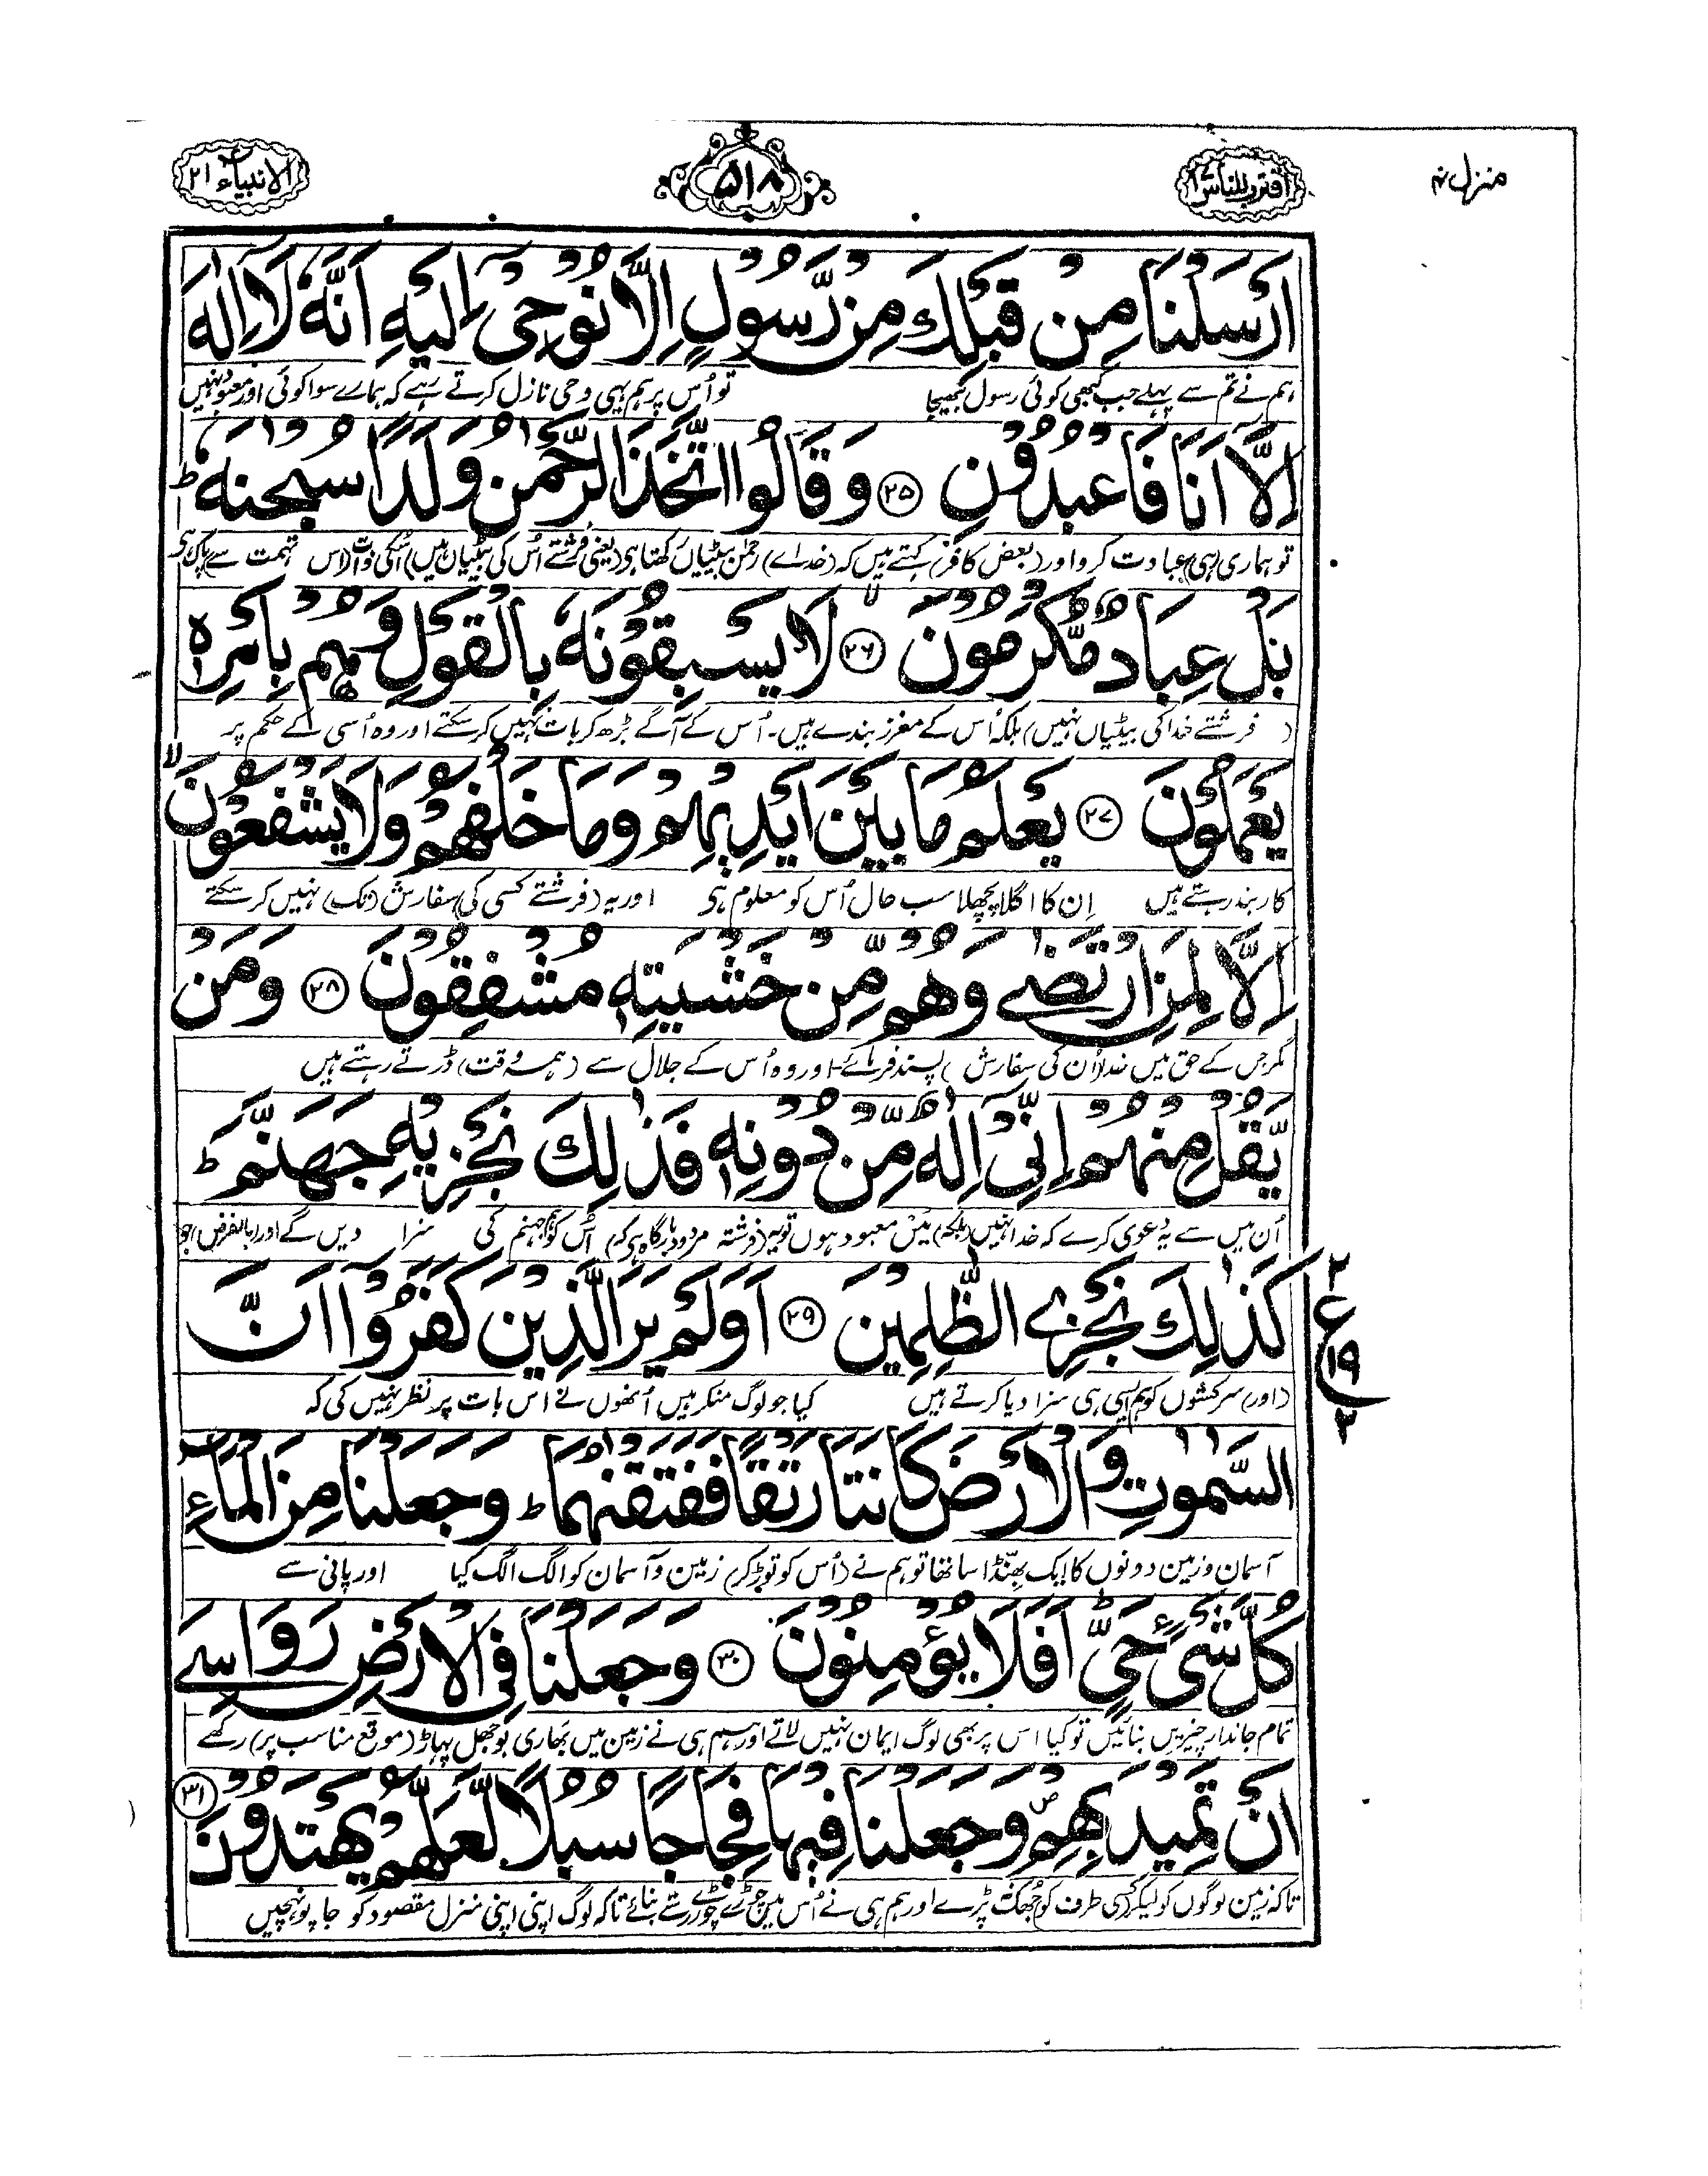 منزل ۴
اقترب للناس ۱۷
۵۱۸
الانبیاء ۲۱
اَرْسَلْنَا مِنْ قَبْلِكَ مِنْ رَّسُوْلٍ اِلَّا نُوْحِیْۤ اِلَیْهِ اَنَّهٗ لَاۤ اِلٰهَ
ہم نے تم سے پہلے جب کبھی کوئی رسول بھیجا تو اُس پر ہم یہی وحی نازل کرتے رہے کہ ہمارے سوا کوئی اور معبود نہیں
اِلَّاۤ اَنَا فَاعْبُدُوْنِ ﴿۲۵﴾ وَ قَالُوا اتَّخَذَ الرَّحْمٰنُ وَلَدًا سُبْحٰنَهٗ ؕ
تو ہماری (ہی) عبادت کرو اور (بعض کافر) کہتے ہیں کہ (خدائے) رحمٰن بیٹیاں رکھتا ہی (یعنی فرشتے اُس کی بیٹیاں ہیں) اُسکی ذات (والا اس تہمت سے) پاک ہی
بَلْ عِبَادٌ مُّكْرَمُوْنَ ۙ﴿۲۶﴾ لَا یَسْبِقُوْنَهٗ بِالْقَوْلِ وَ هُمْ بِاَمْرِهٖ
(فرشتے خدا کی بیٹیاں نہیں) بلکہ اُس کے معزز بندے ہیں۔ اُس کے آگے بڑھ کر بات نہیں کر سکتے اور وہ اُسی کے حکم پر
یَعْمَلُوْنَ ﴿۲۷﴾ یَعْلَمُ مَا بَیْنَ اَیْدِیْهِمْ وَ مَا خَلْفَهُمْ وَ لَا یَشْفَعُوْنَ ۙ
کاربند رہتے ہیں اِن کا اگلا پچھلا سب حال اُس کو معلوم ہی اور یہ (فرشتے کسی کی) سفارش (تک) نہیں کر سکتے
اِلَّا لِمَنِ ارْتَضٰی وَ هُمْ مِّنْ خَشْیَتِهٖ مُشْفِقُوْنَ ﴿۲۸﴾ وَ مَنْ
مگر جس کے حق میں خدا (اُن کی سفارش) پسند فرمائے۔ اور وہ اُس کے جلال سے (ہمہ وقت) ڈرتے رہتے ہیں
یَّقُلْ مِنْهُمْ اِنِّیْۤ اِلٰهٌ مِّنْ دُوْنِهٖ فَذٰلِكَ نَجْزِیْهِ جَهَنَّمَ ؕ
اُن میں سے یہ دعویٰ کرے کہ خدا نہیں (بلکہ) مَیں معبود ہوں تو یہ (فرشتہ مردود بارگاہ ہی کہ) اُس کو ہم جہنم کی سزا دیں گے اور (بالفرض) جو
كَذٰلِكَ نَجْزِی الظّٰلِمِیْنَ ﴿۲۹﴾ اَوَ لَمْ یَرَ الَّذِیْنَ كَفَرُوْۤا اَنَّ
۲
ع
۱۹
۲
(اور) سرکشوں کو ہم ایسی ہی سزا دیا کرتے ہیں کیا جو لوگ منکر ہیں اُنھوں نے اس بات پر نظر نہیں کی کہ
السَّمٰوٰتِ وَ الْاَرْضَ كَانَتَا رَتْقًا فَفَتَقْنٰهُمَا ؕ وَ جَعَلْنَا مِنَ الْمَآءِ
آسمان و زمین دونوں کا ایک بھنڈا سا تھا تو ہم نے (اُس کو توڑ کر) زمین و آسمان کو الگ الگ کیا اور پانی سے
كُلَّ شَیْءٍ حَیٍّ ؕ اَفَلَا یُؤْمِنُوْنَ ﴿۳۰﴾ وَ جَعَلْنَا فِی الْاَرْضِ رَوَاسِیَ
تمام جاندار چیزیں بنائیں تو کیا اس پر بھی لوگ ایمان نہیں لاتے اور ہم ہی نے زمین میں بھاری بوجھل پہاڑ (موقع مناسب پر) رکھے
اَنْ تَمِیْدَ بِهِمْ ۪ وَ جَعَلْنَا فِیْهَا فِجَاجًا سُبُلًا لَّعَلَّهُمْ یَهْتَدُوْنَ ﴿۳۱﴾
تاکہ زمین لوگوں کو لیکر کسی طرف کو جُھک نہ پڑے اور ہم ہی نے اُس میں چوڑے چوڑے رستے بنائے تاکہ لوگ اپنی اپنی منزل مقصود کو جا پہونچیں